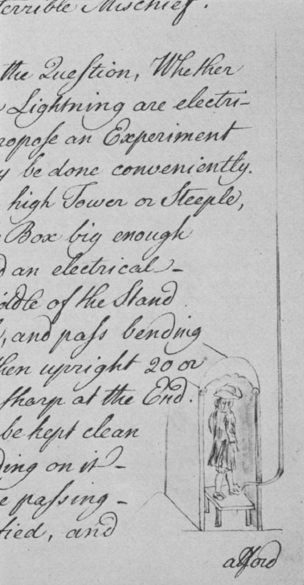 terrible Mischief.
the Question, Whether
Lightning are electri-
ropose an Experiment
y be done conveniently.
high Tower or Steeple,
Box big enough
d an electrical
iddle of the Stand
, and pass bending
hen upright 20 or
sharp at the End.
be kept clean
ding on it
e passing
fied, and
afford